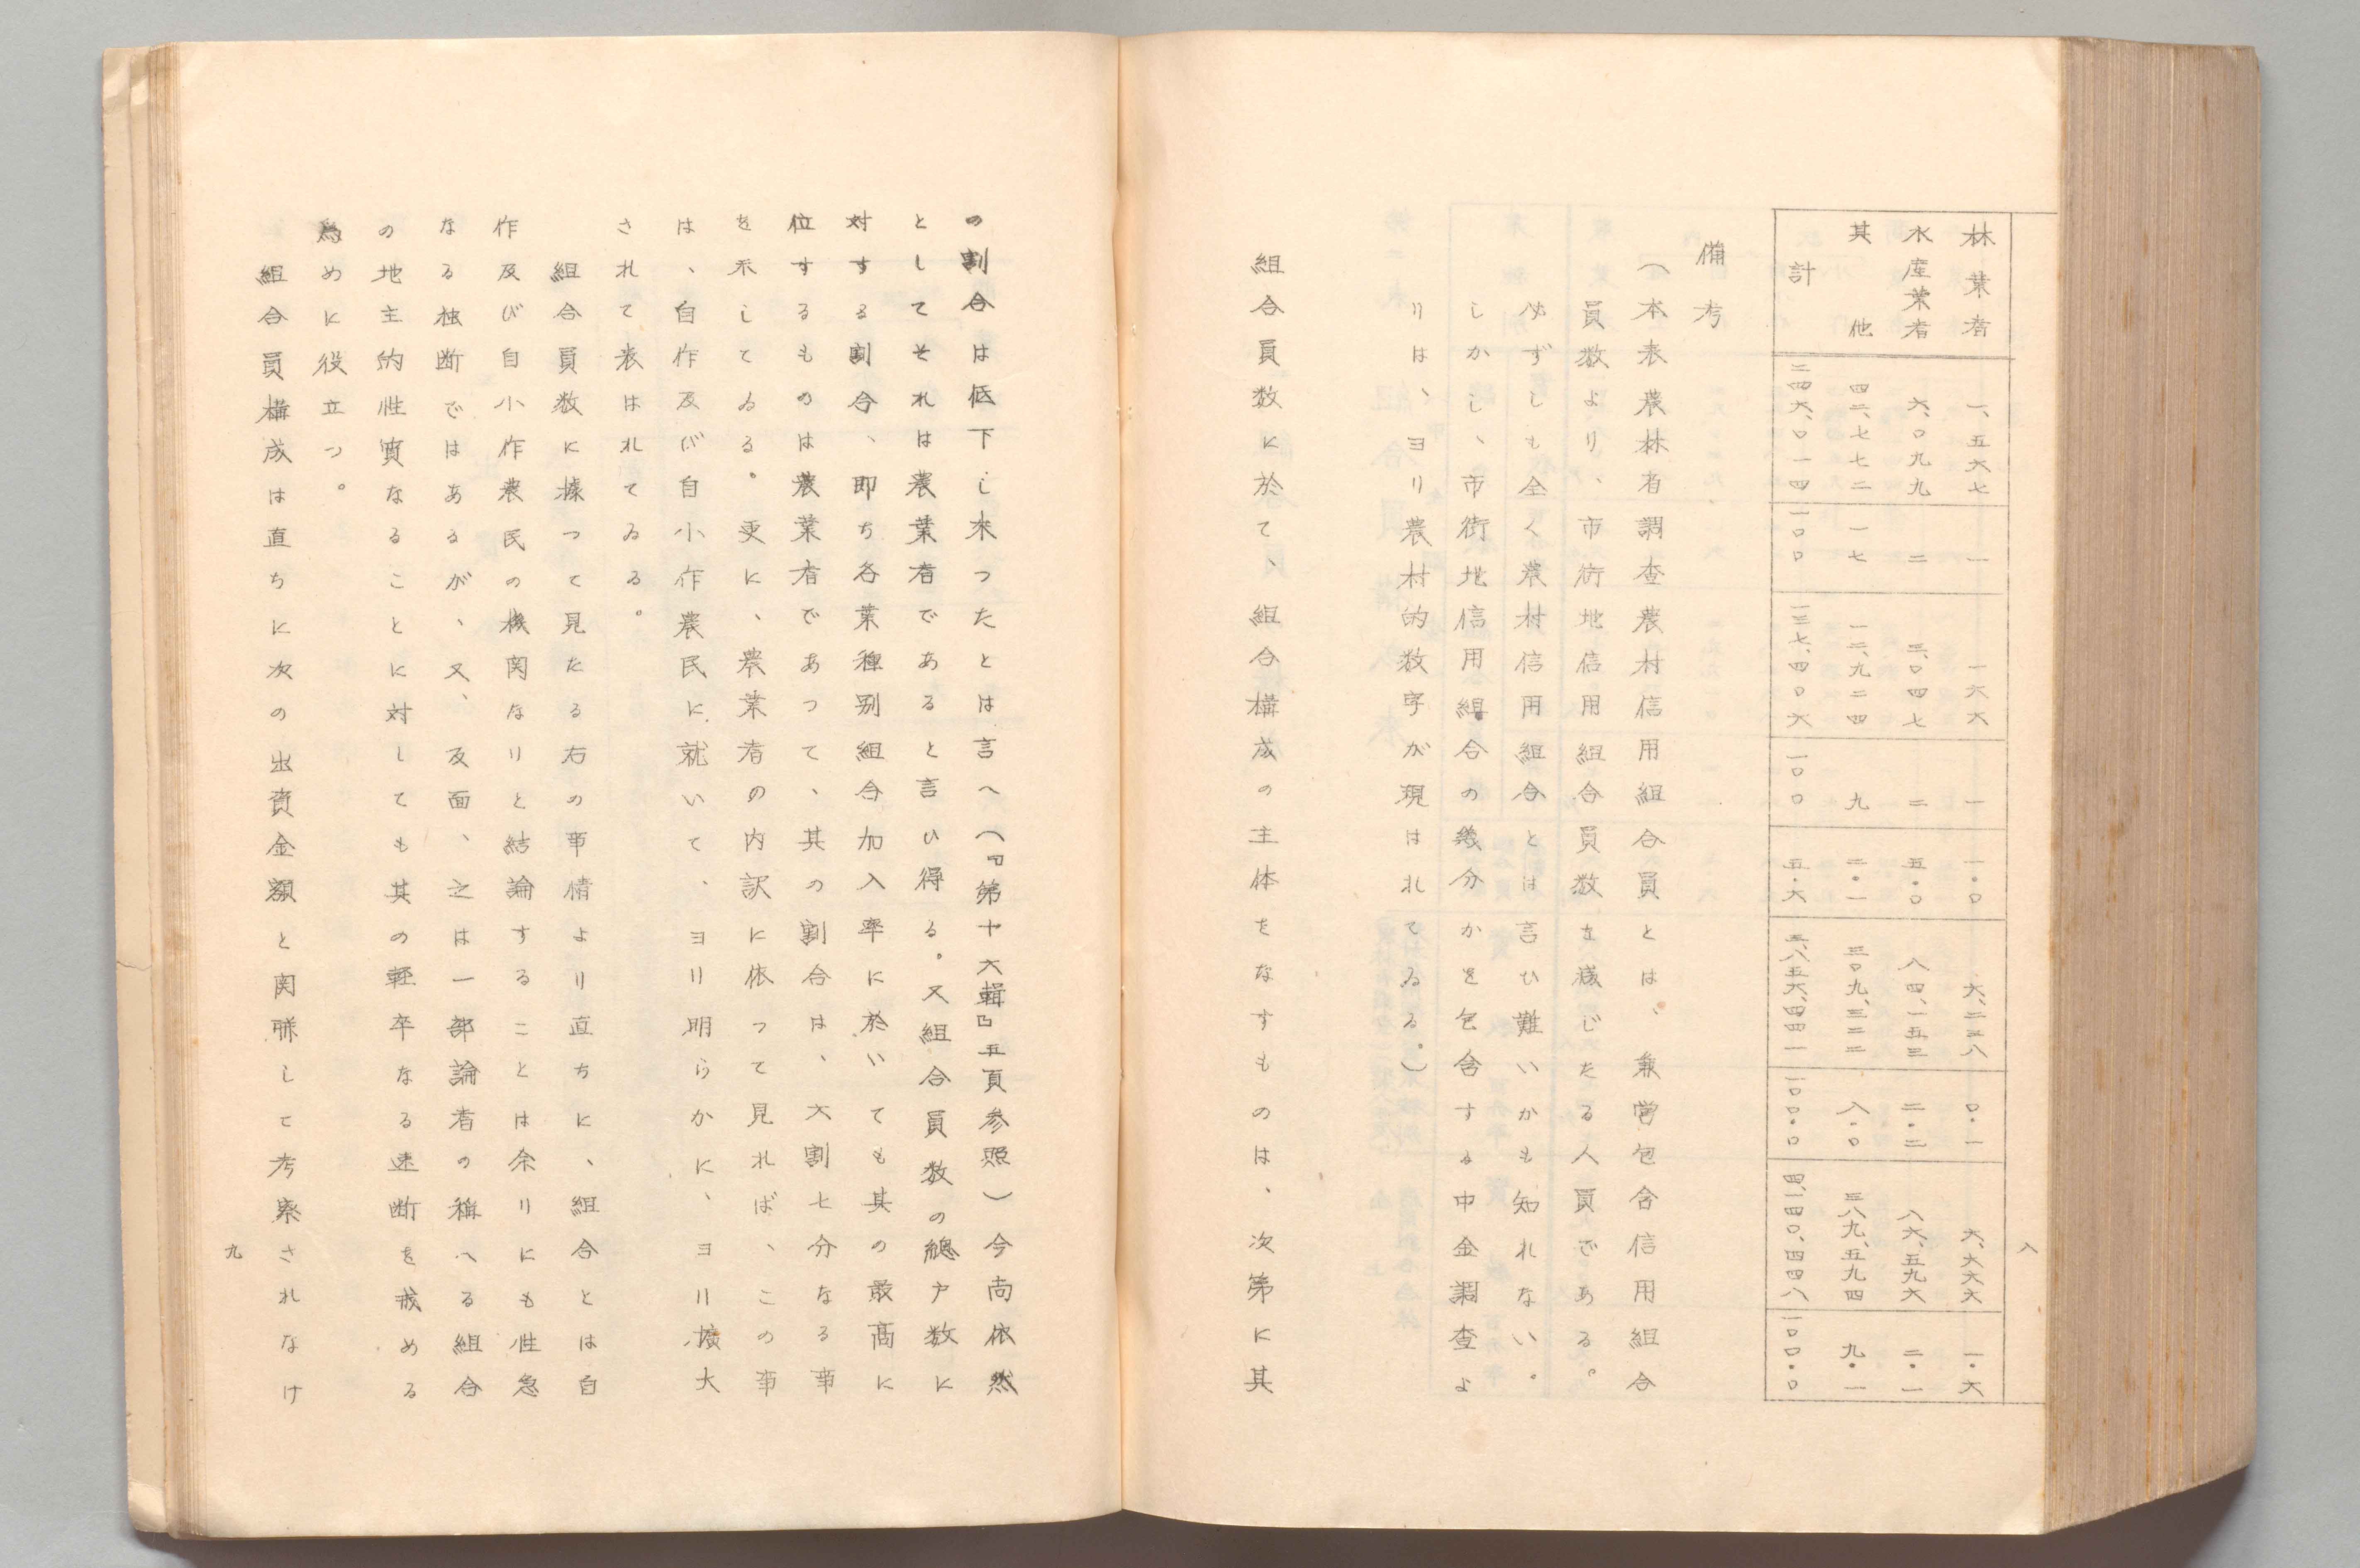 八
林業者 一、五六七 一 一六六 一 一・〇 六、二三八 〇・一 六、六六六 一・六
水産業者 六、〇九九 二 三、〇四七 二 五・〇 八四、一五三 二・二 八六、五九六 二・一
其他 四二、七七二 一七 一二、九二四 九 二・一 三〇九、三二二 八・〇 三八九、五九四 九・一
計 二四六、〇一四 一〇〇 一三七、四〇六 一〇〇 五・六 三、八五六、四四一 一〇〇・〇 四、一四〇、四四八 一〇〇・〇
備考
（本表農林省調査農村信用組合員とは、兼営包含信用組合
員数より、市街地信用組合員数を減じたる人員である。
必ずしも全く農村信用組合とは言ひ難いかも知れない。
しかし、市街地信用組合の幾分かを包含する中金調査よ
りは、ヨリ農村的数字が現はれてゐる。）
組合員数に於て、組合構成の主体をなすものは、次第に其
の割合は低下し来つたとは言へ（『第十六輯』五頁参照）今尚依然
としてそれは農業者であると言ひ得る。又組合員数の總戸数に
対する割合、即ち各業種别組合加入率に於いても其の最高に
位するものは農業者であつて、其の割合は、六割七分なる事
を示してゐる。更に、農業者の内訳に依つて見れば、この事
は、自作及び自小作農民に就いて、ヨリ明らかに、ヨリ擴大
されて表はれてゐる。
組合員数に據つて見たる右の事情より直ちに、組合とは自
作及び自小作農民の機関なりと結論することは余りにも性急
なる独断ではあるが、又、反面、之は一部論者の稱へる組合
の地主的性質なることに対しても其の軽卒なる速断を戒める
爲めに役立つ。
組合員構成は直ちに次の出資金額と関聯して考察されなけ
九